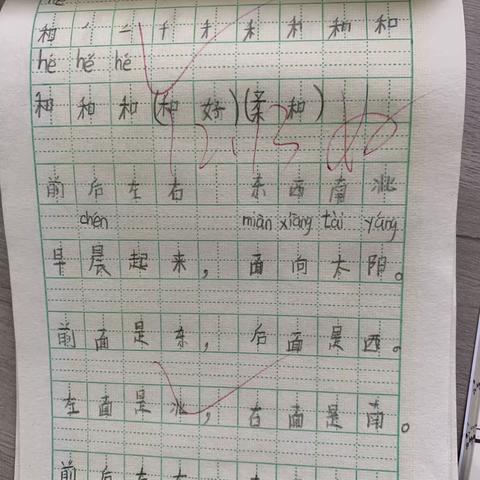 和 ノ 二 千 禾 禾 和 和 和
hé hé hé
和 和 和 (和 好) (亲 和)
12.13
前 后 左 右 东 西 南 北
chén miàn xiàng tài yáng
早 晨 起 来 ， 面 向 太 阳 。
前 面 是 东 ， 后 面 是 西 。
左 面 是 北 ， 右 面 是 南 。
前 后 左 右